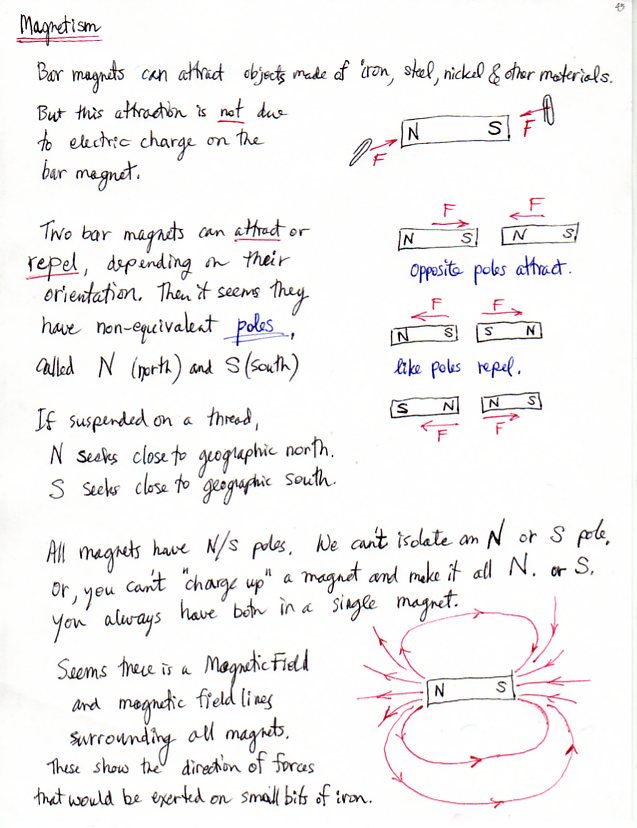 45
Magnetism
Bar magnets can attract objects made of iron, steel, nickel & other materials.
But this attraction is not due
to electric charge on the
bar magnet.
N S
F F
Two bar magnets can attract or
repel, depending on their
orientation. Then it seems they
have non-equivalent poles,
called N (north) and S (south)
F F
N S N S
opposite poles attract.
F F
N S S N
like poles repel.
S N N S
F F
If suspended on a thread,
N seeks close to geographic north.
S seeks close to geographic south.
All magnets have N/S poles. We can't isolate an N or S pole.
Or, you can't "charge up" a magnet and make it all N. or S.
You always have both in a single magnet.
Seems there is a Magnetic Field
and magnetic field lines
surrounding all magnets.
These show the direction of forces
that would be exerted on small bits of iron.
N S